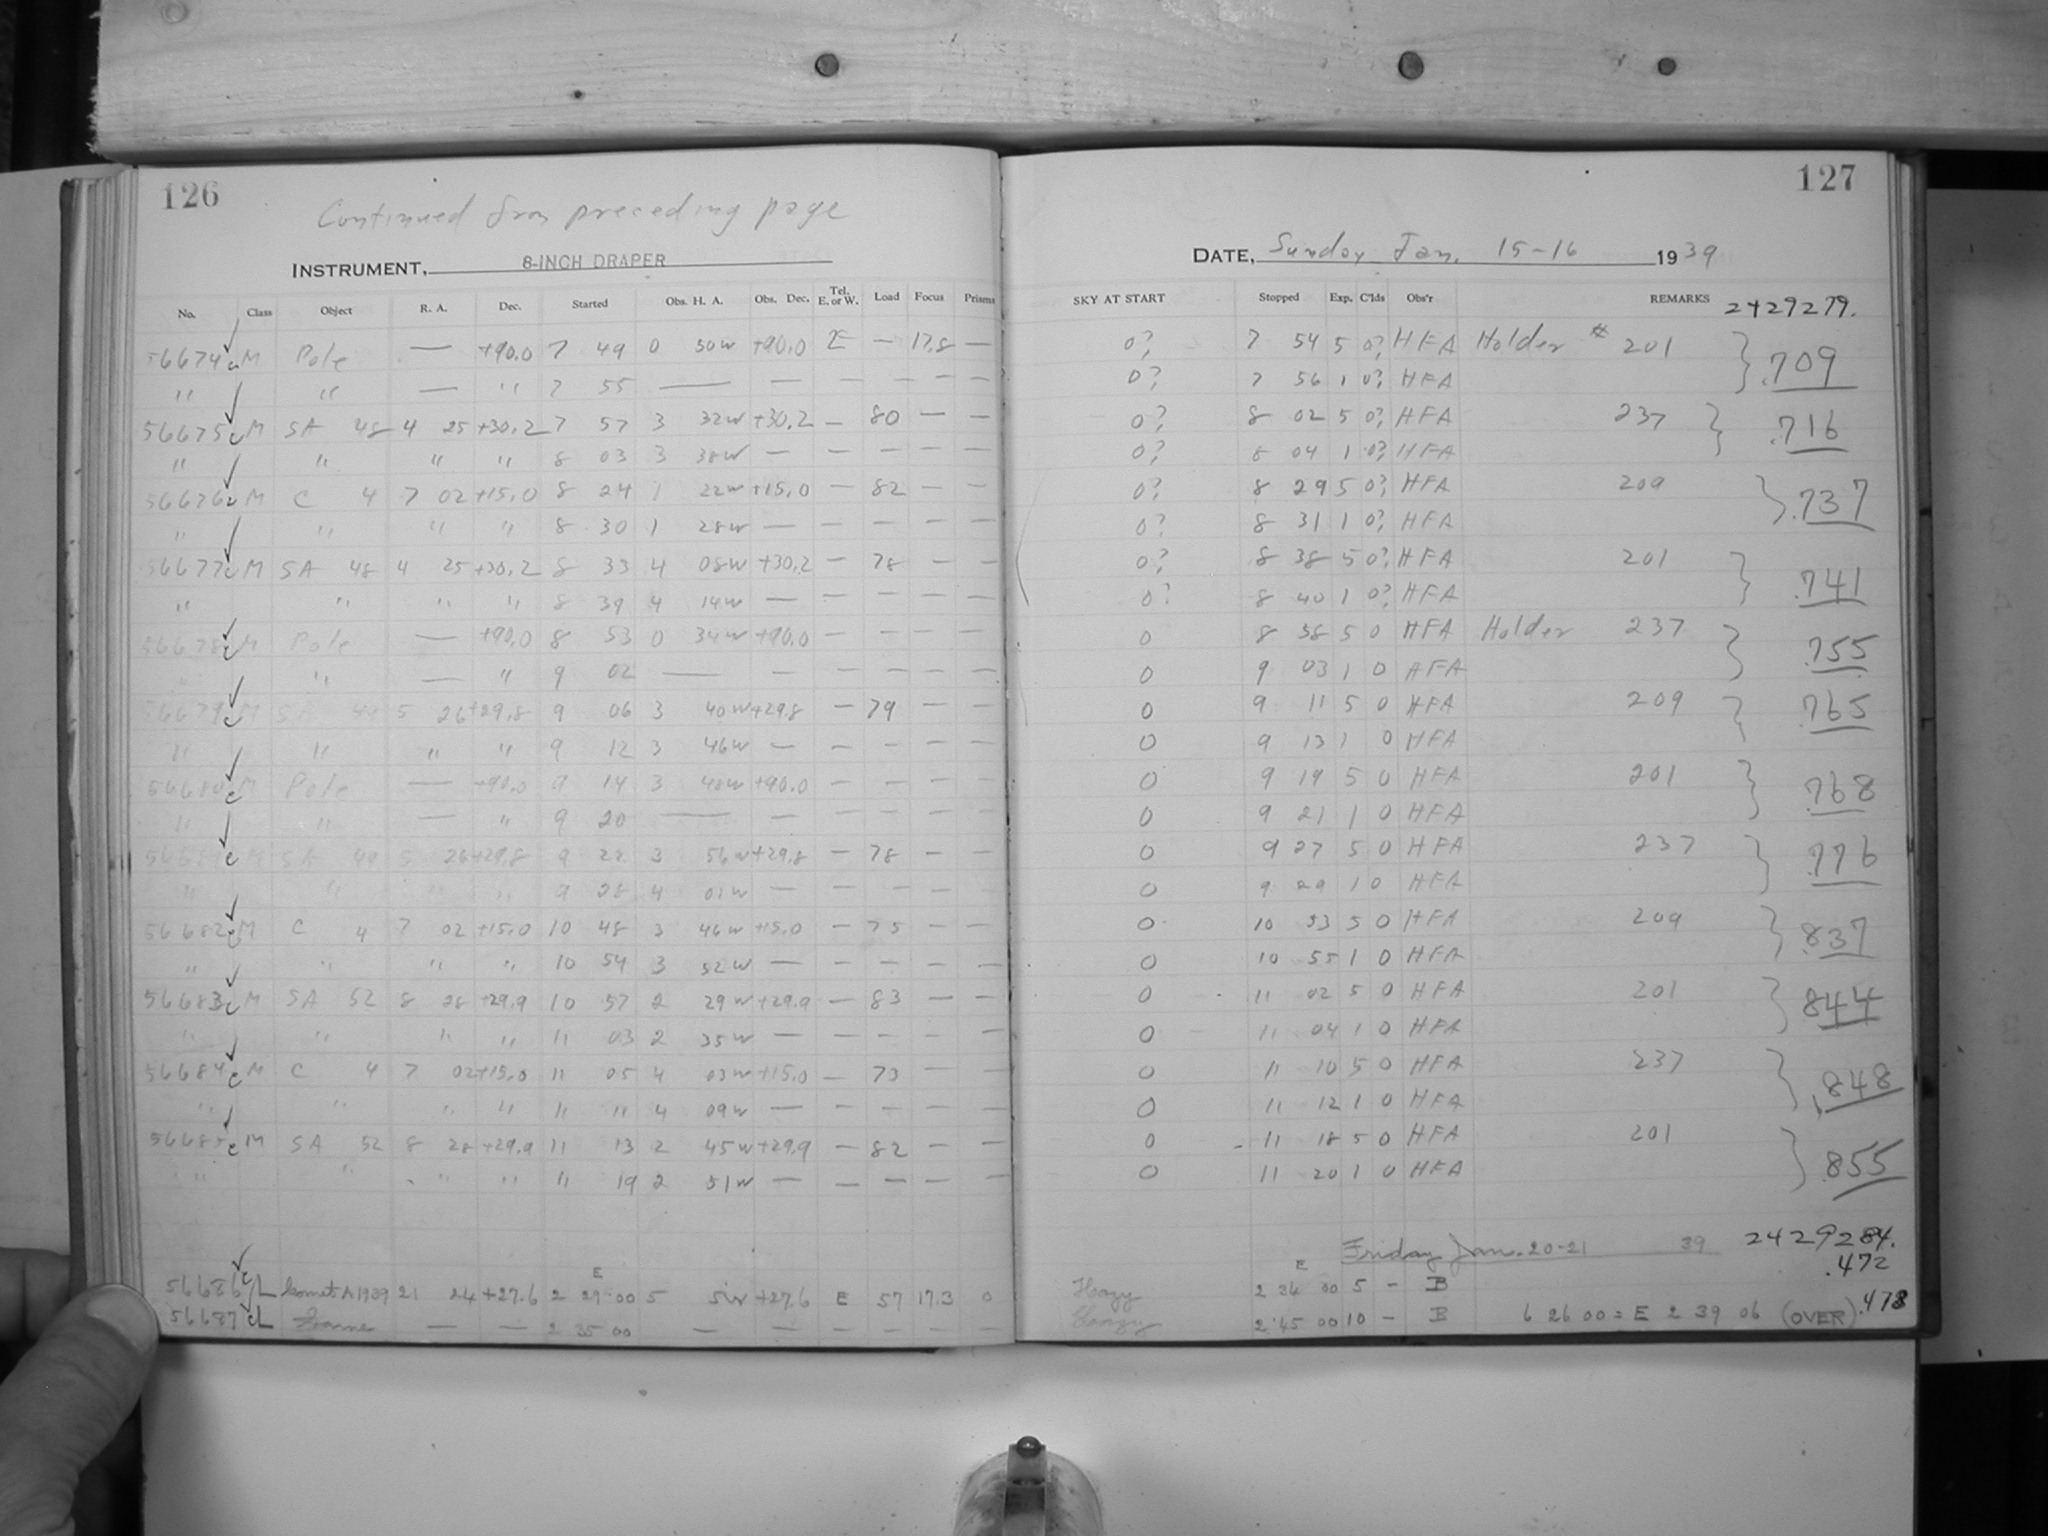 126
Continued from preceding page
INSTRUMENT, 8-INCH DRAPER
No. Class Object R. A. Dec. Started Obs. H. A. Obs. Dec. Tel. E. or W. Load Focus Prisms
56674 c M Pole — +90.0 7 49 0 50W +90.0 E — 17.8 —
" " — " 7 55 — — — — — —
56675 c M SA 48 4 25 +30.2 7 57 3 32W +30.2 — 80 — —
" " " " 8 03 3 38W — — — — —
56676 c M C 4 7 02 +15.0 8 24 1 22W +15.0 — 82 — —
" " " " 8 30 1 28W — — — — —
56677 c M SA 48 4 25 +30.2 8 33 4 08W +30.2 — 78 — —
" " " " 8 39 4 14W — — — — —
56678 c M Pole — +90.0 8 53 0 34W +90.0 — — — —
" " — " 9 02 — — — — — —
56679 c M SA 49 5 26 +29.8 9 06 3 40W +29.8 — 79 — —
" " " " 9 12 3 46W — — — — —
56680 c M Pole — +90.0 9 14 3 48W +90.0 — — — —
" " — " 9 20 — — — — — —
56681 c M SA 49 5 26 +29.8 9 22 3 56W +29.8 — 78 — —
" " " " 9 28 4 01W — — — — —
56682 c M C 4 7 02 +15.0 10 48 3 46W +15.0 — 75 — —
" " " " 10 54 3 52W — — — — —
56683 c M SA 52 8 28 +29.9 10 57 2 29W +29.9 — 83 — —
" " " " 11 03 2 35W — — — — —
56684 c M C 4 7 02 +15.0 11 05 4 03W +15.0 — 73 — —
" " " " 11 11 4 09W — — — — —
56685 c M SA 52 8 28 +29.9 11 13 2 45W +29.9 — 82 — —
" " " " 11 19 2 51W — — — — —
E
56686 c L Comet A1939 21 24 +27.6 2 29 00 5 51W +27.6 E 57 17.3 0
56687 c L Same — — 2 35 00 — — — — — —
127
DATE, Sunday Jan. 15-16 1939
SKY AT START Stopped Exp. C'lds Obs'r REMARKS 2429279.
0? 7 54 5 0? HFA Holder # 201 .709
0? 7 56 1 0? HFA
0? 8 02 5 0? HFA 237 .716
0? 8 04 1 0? HFA
0? 8 29 5 0? HFA 209 .737
0? 8 31 1 0? HFA
0? 8 38 5 0? HFA 201 .741
0? 8 40 1 0? HFA
0 8 58 5 0 HFA Holder 237 .755
0 9 03 1 0 HFA
0 9 11 5 0 HFA 209 .765
0 9 13 1 0 HFA
0 9 19 5 0 HFA 201 .768
0 9 21 1 0 HFA
0 9 27 5 0 HFA 237 .776
0 9 29 1 0 HFA
0 10 53 5 0 HFA 209 .837
0 10 55 1 0 HFA
0 11 02 5 0 HFA 201 .844
0 11 04 1 0 HFA
0 11 10 5 0 HFA 237 .848
0 11 12 1 0 HFA
0 11 18 5 0 HFA 201 .855
0 11 20 1 0 HFA
Friday Jan. 20-21 39 2429284.
E .472
Hazy 2 34 00 5 — B
Hazy 2 45 00 10 — B 6 26 00 = E 2 39 06 (OVER) .478